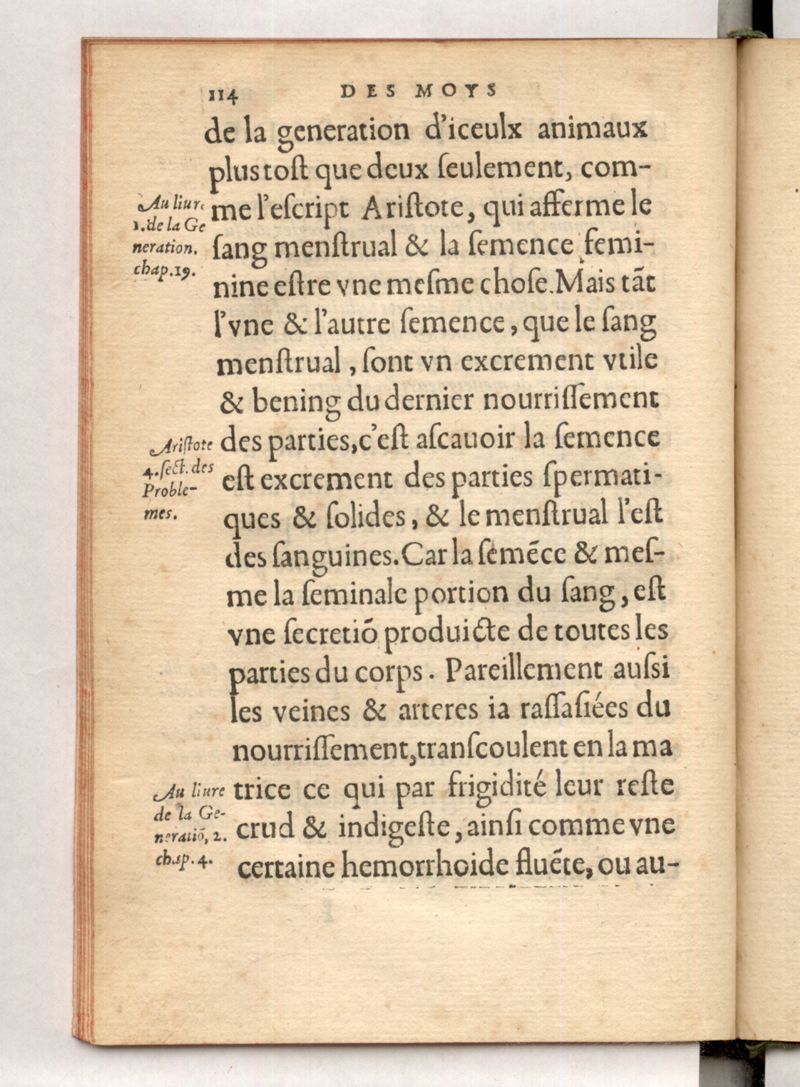 114 DES MOYS
de la generation d'iceulx animaux
plustoſt que deux ſeulement, com-
me l'eſcript Ariſtote, qui afferme le
ſang menſtrual & la ſemence femi-
nine eſtre vne meſme choſe. Mais tãt
l'vne & l'autre ſemence, que le ſang
menſtrual, ſont vn excrement vtile
& bening du dernier nourriſſement
des parties, c'eſt aſcauoir la ſemence
eſt excrement des parties ſpermati-
ques & ſolides, & le menſtrual l'eſt
des ſanguines. Car la ſemẽce & meſ-
me la ſeminale portion du ſang, eſt
vne ſecretiõ produicte de toutes les
parties du corps. Pareillement auſsi
les veines & arteres ia raſſaſiées du
nourriſſement, tranſcoulent en la ma
trice ce qui par frigidité leur reſte
crud & indigeſte, ainſi comme vne
certaine hemorrhoide fluẽte, ou au-
Au liure
1. de la Ge
neration.
chap. 19.
Ariſtote
4. ſect. des
Proble-
mes.
Au liure
de la Ge-
neratiõ, 2.
chap. 4.